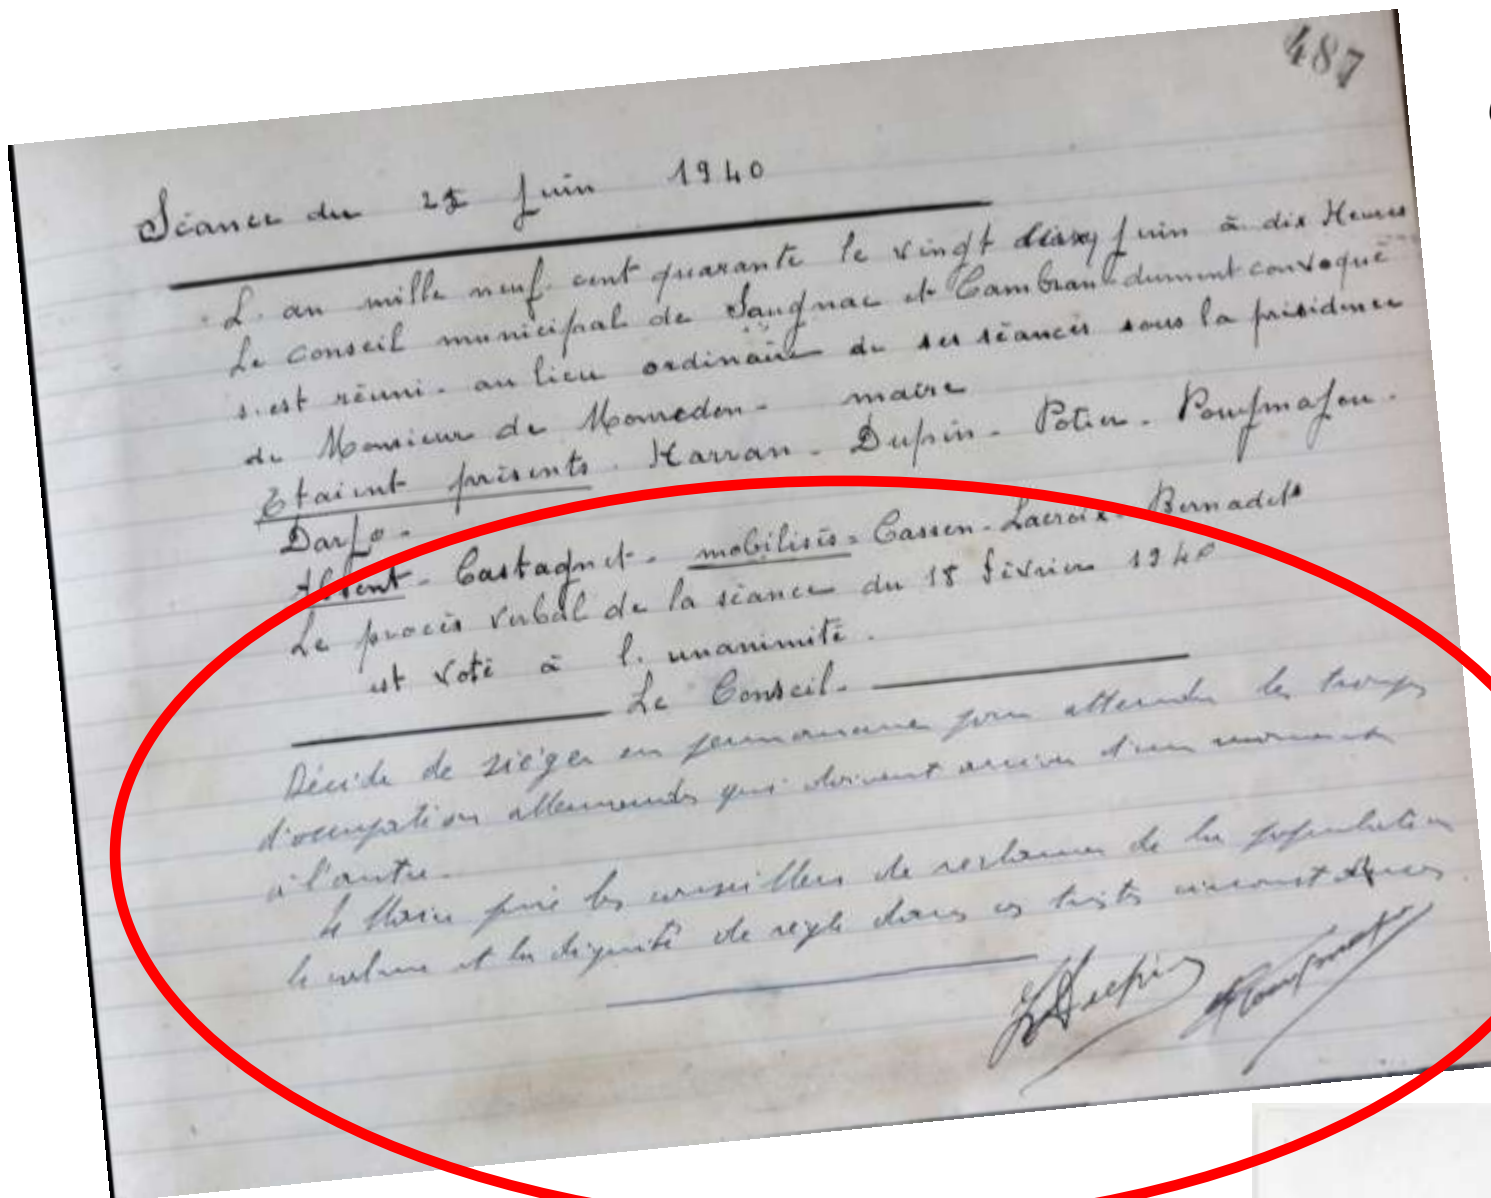 487
Séance du 25 Juin 1940
L'an mille neuf cent quarante le vingt Juin à dix Heures
Le Conseil municipal de Saugnac et Cambran dument convoqué
s'est réuni au lieu ordinaire de ses séances sous la présidence
de Monsieur de Mouredon - maire
Etaient présents. Harran - Dupin - Potier - Pouymajou.
Darjo -
Absent - Castagnet. mobilisés = Cassen - Lacroix - Bernadets
Le procès verbal de la séance du 18 février 1940
est voté à l'unanimité.
Le Conseil.
Décide de siéger en permanence pour attendre les troupes
d'occupation allemandes qui doivent arriver d'un moment
à l'autre.
Le Maire prie les conseillers de réclamer de la population
le calme et la dignité de règle dans ces tristes circonstances.
Dupin